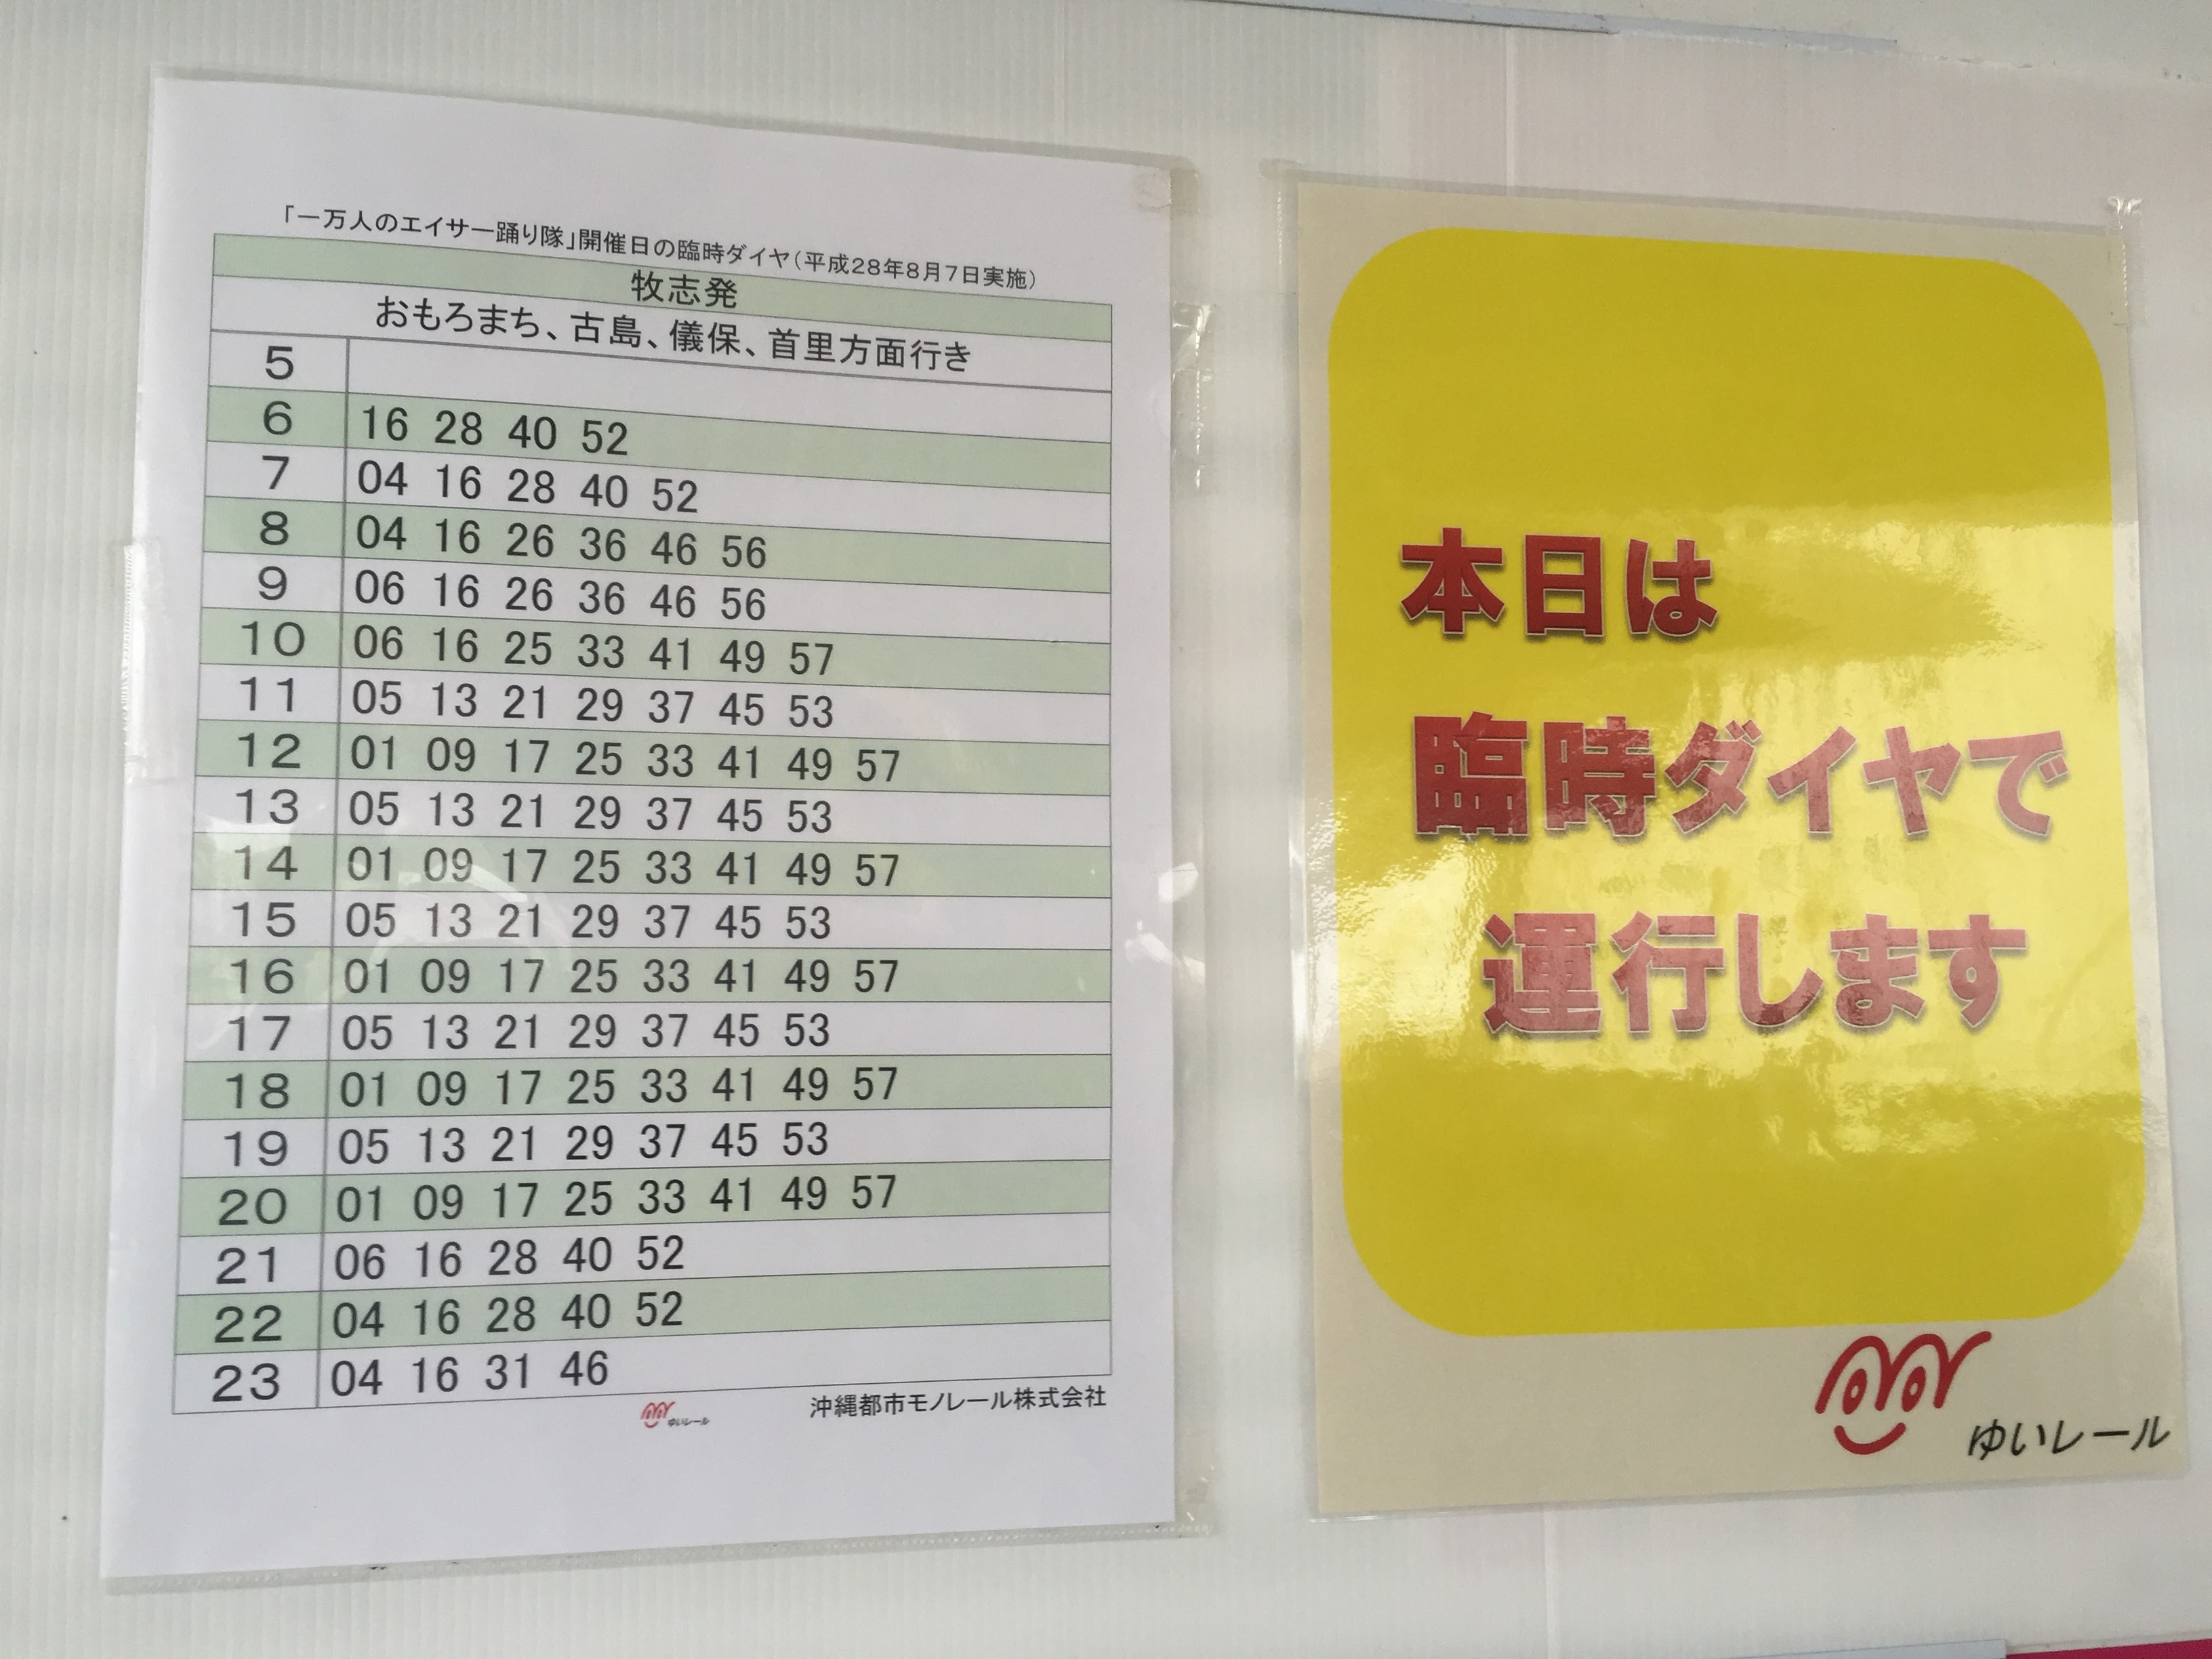 「一万人のエイサー踊り隊」開催日の臨時ダイヤ（平成28年8月7日実施）
牧志発
おもろまち、古島、儀保、首里方面行き
5
6 16 28 40 52
7 04 16 28 40 52
8 04 16 26 36 46 56
9 06 16 26 36 46 56
10 06 16 25 33 41 49 57
11 05 13 21 29 37 45 53
12 01 09 17 25 33 41 49 57
13 05 13 21 29 37 45 53
14 01 09 17 25 33 41 49 57
15 05 13 21 29 37 45 53
16 01 09 17 25 33 41 49 57
17 05 13 21 29 37 45 53
18 01 09 17 25 33 41 49 57
19 05 13 21 29 37 45 53
20 01 09 17 25 33 41 49 57
21 06 16 28 40 52
22 04 16 28 40 52
23 04 16 31 46
ゆいレール 沖縄都市モノレール株式会社
本日は
臨時ダイヤで
運行します
ゆいレール